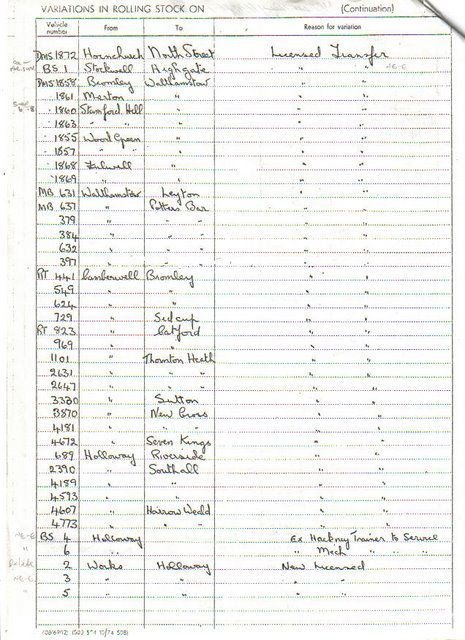 VARIATIONS IN ROLLING STOCK ON (Continuation)
Vehicle number From To Reason for variation
DMS 1872 Hornchurch North Street Licensed Transfer
BS 1 Stockwell Highgate " " NE-C
DMS 1858 Bromley Walthamstow " "
1861 Merton " " "
1860 Stamford Hill " " "
1863 " " " " "
1855 Wood Green " " "
1857 " " " " "
1868 Fulwell " " "
1869 " " " "
MB 631 Walthamstow Leyton " "
MB 637 " Potters Bar " "
379 " " " " "
384 " " " " "
632 " " " " "
397 " " " " "
RT 441 Camberwell Bromley " "
549 " " " "
624 " " " "
729 " Sidcup " "
RT 823 " Catford " "
969 " " " "
1101 " Thornton Heath " "
2631 " " " " "
2647 " " " " "
3330 " Sutton " "
3870 " New Cross " "
4181 " " " " "
4672 " Seven Kings " "
689 Holloway Riverside " "
2390 " Southall " "
4189 " " " "
4593 " " " "
4607 " Harrow Weald " "
4773 " " " " "
NE-C BS 4 Holloway Ex Hackney Trainer to Service
" 6 " " Mech " " "
Delete 2 Works Holloway New Licensed
NE-C 3 " " " "
" 5 " " " "